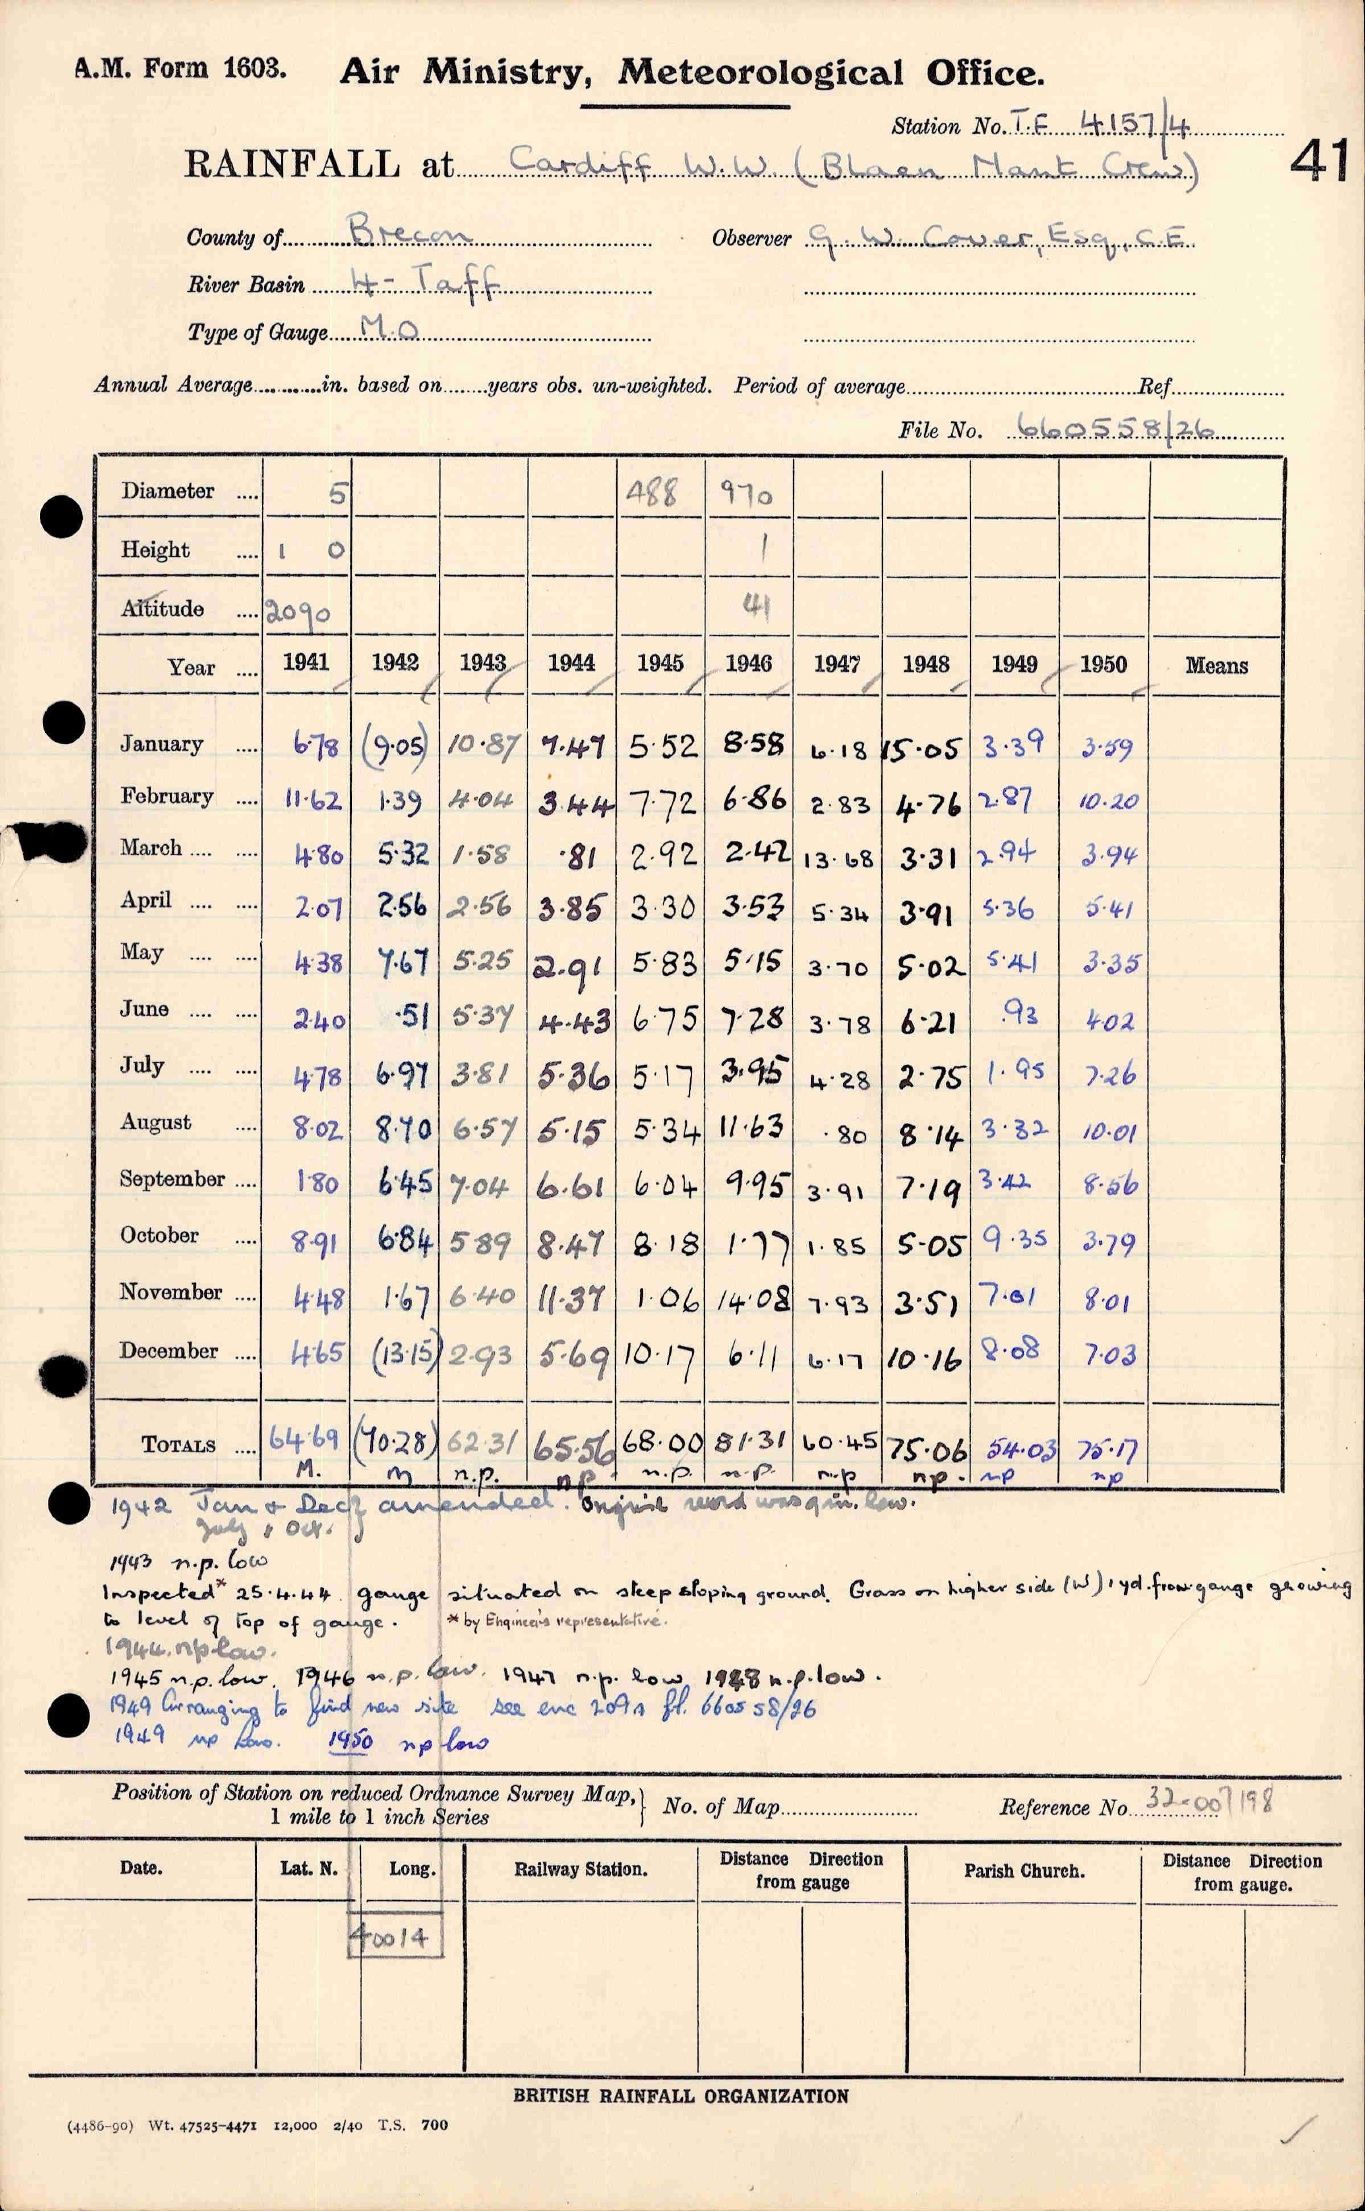 A.M. Form 1603. Air Ministry, Meteorological Office.
Station No. T.F 4157/4
41
RAINFALL at Cardiff W.W. (Blaen Nant Crew)
County of Brecon Observer G. W. Cover, Esq., C.E.
River Basin 4 - Taff
Type of Gauge M.O
Annual Average in. based on years obs. un-weighted. Period of average Ref
File No. 660558/26
Diameter .... 5 488 970
Height .... 1 0 1
Altitude .... 2090 41
Year .... 1941 1942 1943 1944 1945 1946 1947 1948 1949 1950 Means
January .... 6.78 (9.05) 10.87 7.47 5.52 8.58 6.18 15.05 3.39 3.59
February .... 11.62 1.39 4.04 3.44 7.72 6.86 2.83 4.76 2.87 10.20
March .... .... 4.80 5.32 1.58 .81 2.92 2.42 13.68 3.31 2.94 3.94
April .... .... 2.07 2.56 2.56 3.85 3.30 3.53 5.34 3.91 5.36 5.41
May .... .... 4.38 7.67 5.25 2.91 5.83 5.15 3.70 5.02 5.41 3.35
June .... .... 2.40 .51 5.37 4.43 6.75 7.28 3.78 6.21 .93 4.02
July .... .... 4.78 6.97 3.81 5.36 5.17 3.95 4.28 2.75 1.95 7.26
August .... 8.02 8.70 6.57 5.15 5.34 11.63 .80 8.14 3.32 10.01
September .... 1.80 6.45 7.04 6.61 6.04 9.95 3.91 7.19 3.42 8.56
October .... 8.91 6.84 5.89 8.47 8.18 1.77 1.85 5.05 9.35 3.79
November .... 4.48 1.67 6.40 11.37 1.06 14.08 7.93 3.51 7.01 8.01
December .... 4.65 (13.15) 2.93 5.69 10.17 6.11 6.17 10.16 8.08 7.03
TOTALS .... 64.69 (70.28) 62.31 65.56 68.00 81.31 60.45 75.06 54.03 75.17
M. M n.p. n.p. n.p. n.p. n.p n.p. np np
1942 Jan & Dec amended. Original record was 9 in. low.
July & Oct.
1943 n.p. low
Inspected* 25.4.44. gauge situated on steep sloping ground. Grass on higher side (W) 1 yd. from gauge growing
to level of top of gauge. * by Engineer's representative.
1944. np low.
1945 n.p. low. 1946 n.p. low. 1947 n.p. low 1948 n.p. low.
1949 Arranging to find new site see enc 209A fl. 660558/26
1949 np low. 1950 np low
Position of Station on reduced Ordnance Survey Map, No. of Map Reference No. 32-007198
1 mile to 1 inch Series
Date. Lat. N. Long. Railway Station. Distance Direction from gauge Parish Church. Distance Direction from gauge.
40014
BRITISH RAINFALL ORGANIZATION
(4486-90) Wt. 47525-4471 12,000 2/40 T.S. 700